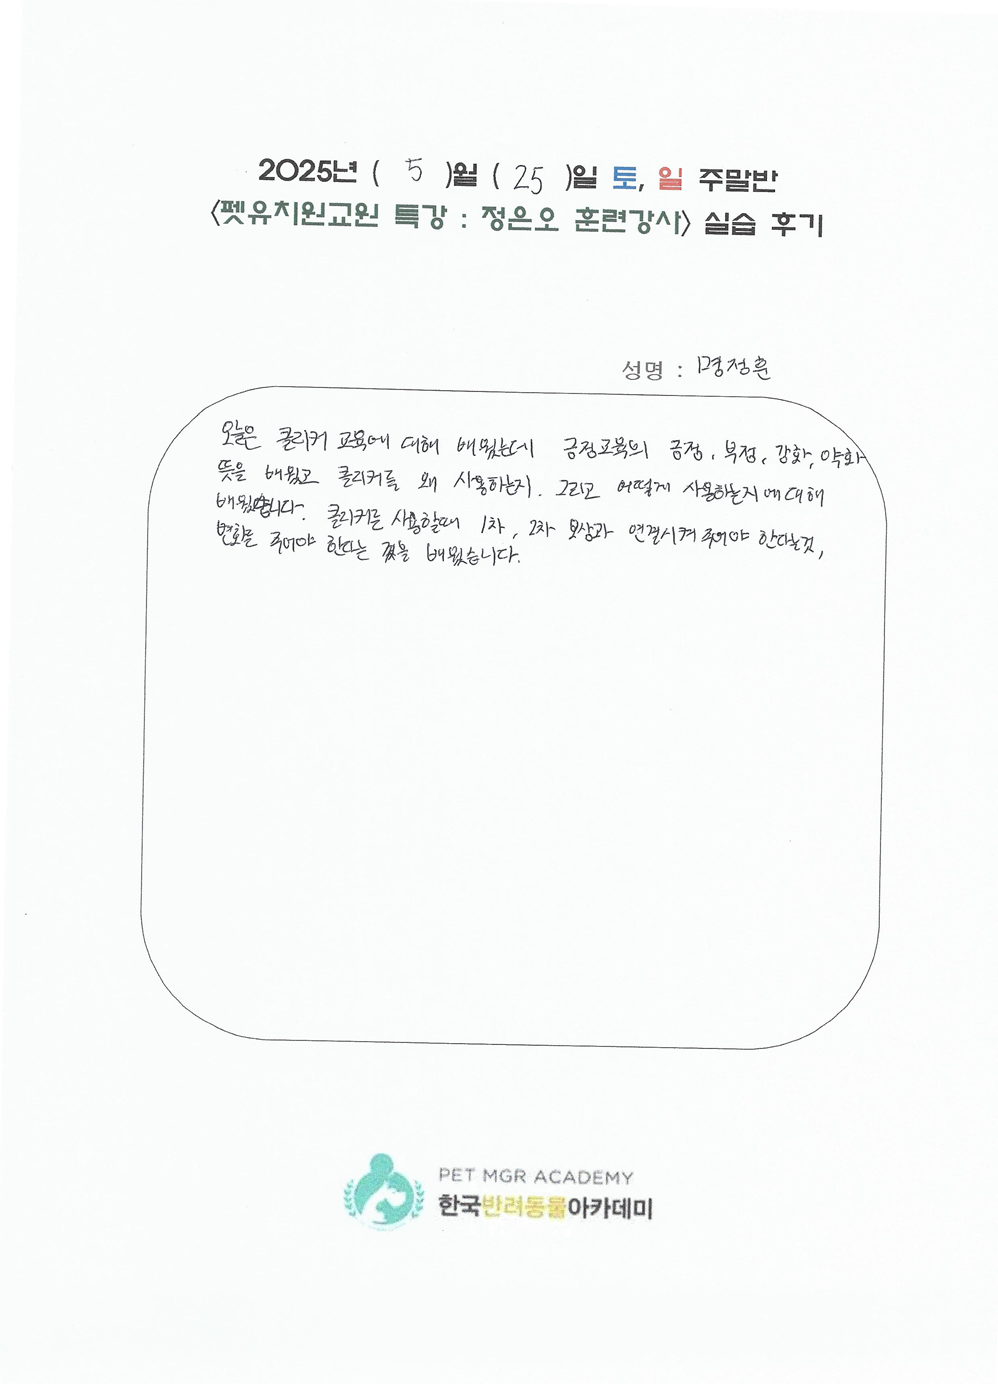 2025년 ( 5 )월 ( 25 )일 토, 일 주말반
<펫유치원교원 특강 : 정은오 훈련강사> 실습 후기
성명 : 명정훈
오늘은 클리커 교육에 대해 배웠는데 긍정교육의 긍정, 부정, 강화, 약화
뜻을 배웠고 클리커를 왜 사용하는지. 그리고 어떻게 사용하는지에 대해
배웠습니다. 클리커를 사용할때 1차, 2차 보상과 연결시켜 주어야 한다는것,
변화를 주어야 한다는 것을 배웠습니다.
PET MGR ACADEMY
한국반려동물아카데미